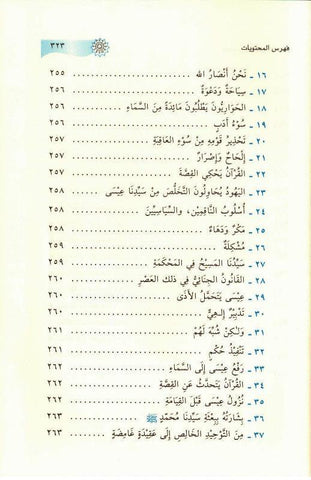 فهرس المحتويات ٣٢٣
١٦ ـ نَحْنُ أَنْصَارُ الله .......................... ٢٥٥
١٧ ـ سِيَاحَةٌ وَدَعْوَةٌ .......................... ٢٥٦
١٨ ـ الحَوَارِيُّونَ يَطْلُبُونَ مَائِدَةً مِنَ السَّمَاءِ ........ ٢٥٦
١٩ ـ سُوْءُ أَدَبٍ .......................... ٢٥٦
٢٠ ـ تَحْذِيرُ قَوْمِهِ مِنْ سُوْءِ العَاقِبَةِ ............ ٢٥٧
٢١ ـ إِلْحَاحٌ وَإِصْرَارٌ .......................... ٢٥٧
٢٢ ـ القُرْآنُ يَحْكِي القِصَّةَ .................. ٢٥٧
٢٣ ـ اليَهُودُ يُحَاوِلُونَ التَّخَلُّصَ مِنْ سَيِّدِنَا عِيْسَى ...... ٢٥٨
٢٤ ـ أُسْلُوبُ النَّاقِمِيْنَ، والسِّيَاسِيِّيْنَ .............. ٢٥٨
٢٥ ـ مَكْرٌ وَدَهَاءٌ .......................... ٢٥٨
٢٦ ـ مُشْكِلَةٌ .......................... ٢٥٩
٢٧ ـ سَيِّدُنَا المَسِيْحُ فِي المَحْكَمَةِ .............. ٢٥٩
٢٨ ـ القَانُونُ الجِنَائِيُّ فِي ذلك العَصْرِ ............ ٢٦٠
٢٩ ـ عِيْسَى يَتَحَمَّلُ الأَذَى .................. ٢٦٠
٣٠ ـ تَدْبِيْرٌ إِلـهِيٌّ .......................... ٢٦٠
٣١ ـ وَلـكِنْ شُبِّهَ لَهُمْ .......................... ٢٦١
٣٢ ـ تَنْفِيْذُ حُكْمٍ .......................... ٢٦١
٣٣ ـ رَفْعُ عِيْسَى إِلَى السَّمَاءِ .................. ٢٦٢
٣٤ ـ القُرْآنُ يَتَحَدَّثُ عَنِ القِصَّةِ .............. ٢٦٢
٣٥ ـ نُزُولُ عِيْسَى قَبْلَ القِيَامَةِ .............. ٢٦٢
٣٦ ـ بِشَارَتُهُ بِبِعْثَةِ سَيِّدِنَا مُحَمَّدٍ ﷺ ............ ٢٦٣
٣٧ ـ مِنَ التَّوْحِيْدِ الخَالِصِ إِلَى عَقِيْدَةٍ غَامِضَةٍ ........ ٢٦٣